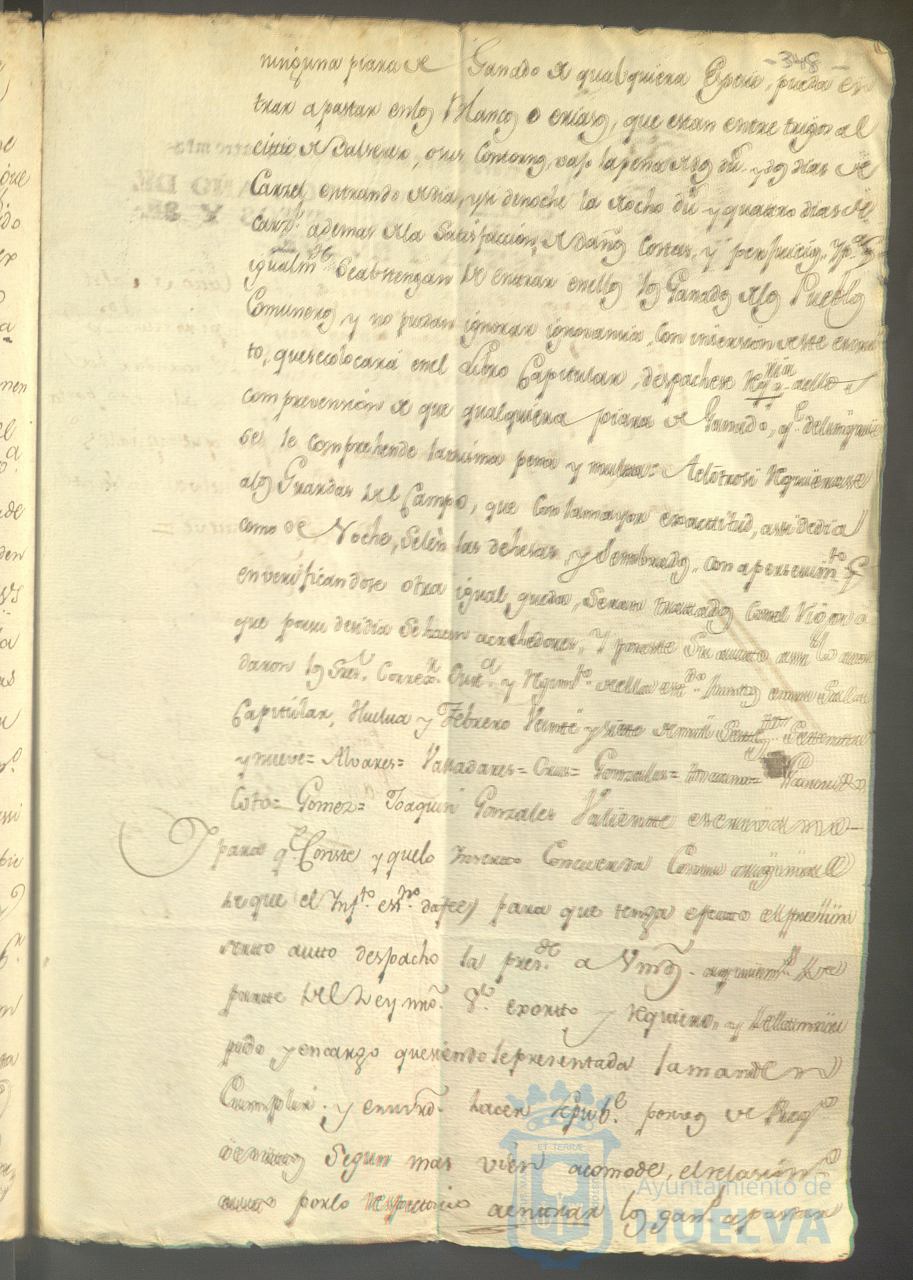 -348-
ninguna piara de Ganado de qualquiera Especie, pueda en
trar a pastar en los Blancos o eriazos, que estan entre trigos al
citio de Balsero, o sus Contornos, vajo la pena de dos du.s y dos dias de
Carzel entrando de dia, y si de noche la de ocho du.s y quatro dias de
Carz.l ademas de la Satisfaccion, de daños Costas, y perjuicios, y p.a q.e
igualm.te se abstengan de entrar en ellos los Ganados de los Pueblos
Comuneros y no puedan ignorar ignorancia, con insersion de este escri
to, que se colocará en el Libro Capitular, despachese Req.ria a ellos
comprevensión de que qualquiera piara de Ganado, q.e delinquiese
se le comprehende la misma pena y multa= Aclotrosi Requierase
a los Guardas del Campo, que con la mayor exactitud, assi de dia
como de Noche, Selen las dehesas, y Sembrados, con apersevim.to q.e
en verificandose otra igual queja, Seran tratados Con el Vigor a
que por su desidia se hacen acrehedores, Y por este Su autto assi lo acor
daron los Sres. Correx.r y Regim.to de ella est.do Juntos en su Sala
Capitular, Huelva y Febrero Veinte y siete de mill Settecientos Settenta
y nueve= Alvares= Valladares= Cruz= Gonzales=
Coto= Gomez= Joaquin Gonzales Valiente escrivano
Y para q.e Conste y que lo Inserto Concuerda Con su original
de que el Inf.to es.no da fee) para que tenga efecto el
autto despacho la pres.te a Vmds.
parte del Rey nro. S.r exorto y requiero, y de la mia
pido y encargo que siendole presentada la manden
Cumplir. y en su vrd. hacer Repub.e
Segun mas vien acomode, el relasion.do
autto por lo respectivo a entrar los gan.s a pastar
Ayuntamiento de
HUELVA